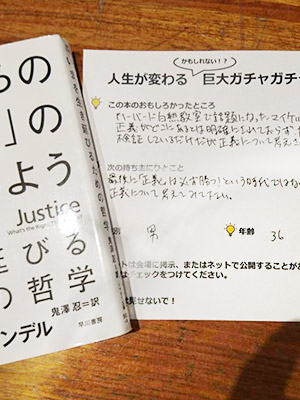 らの
」の
よう
Justice
What's the Right
延びる
の哲学
鬼澤 忍=訳
早川書房
ンデル
いまを生き延びるための哲学
かもしれない!?
人生が変わる 巨大ガチャガチャ
この本のおもしろかったところ
ハーバード白熱教室で話題になったマイケル
正義がどこにあるとは明確にされておらず、
検証しているだけだが正義について考えさ
次の持ち主にひとこと
最後に「正義」は必ず勝つ!という時代ではな
正義について考えてみて下さい。
別 男 年齢 36
トは会場に掲示、またはネットで公開することがあ
はチェックをつけてください。
は見せないで!